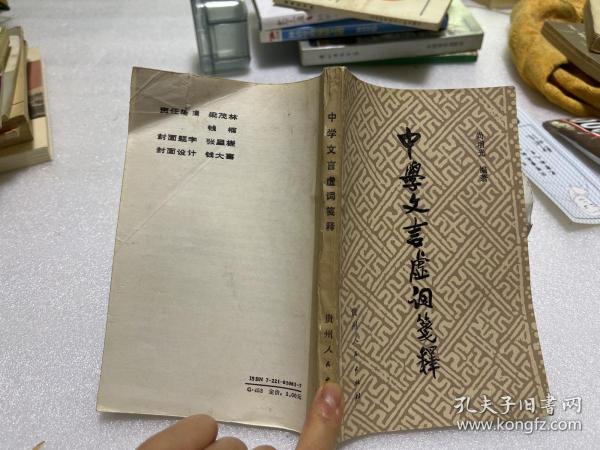 责任编辑 梁茂林
钱榴
封面题字 张星槎
封面设计 钱大喜
ISBN 7-221-0
G·452 定价：2.00元
中学文言虚词笺释
贵州人民
编著
中學文言虚词箋釋
贵州人民出版社
孔夫子旧书网
www.kongfz.com